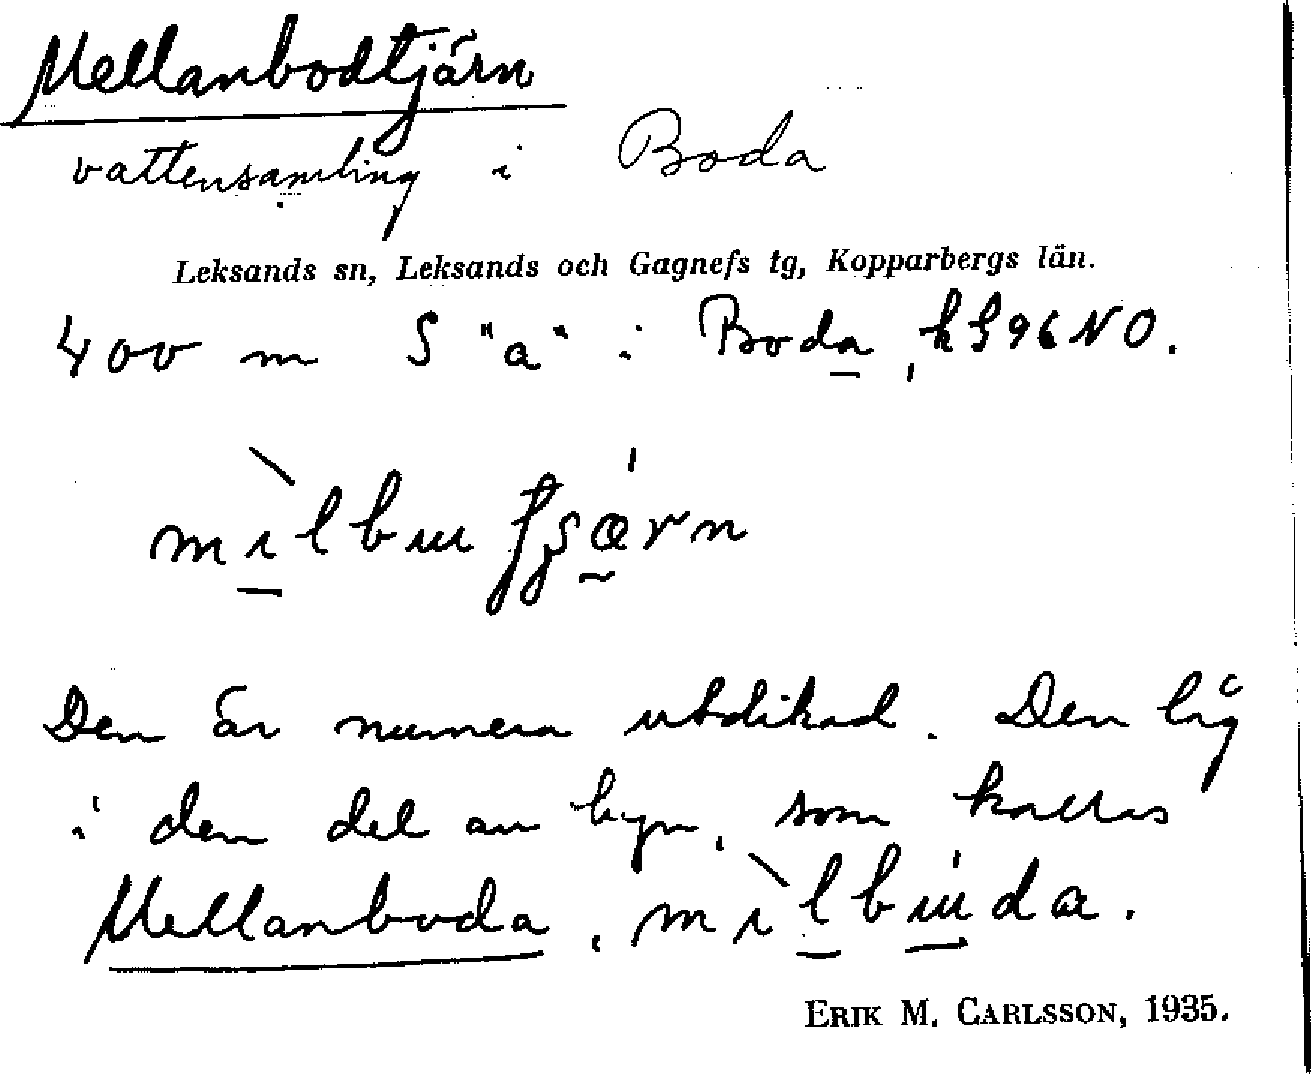 Mellanbodtjärn
vattensamling i Boda
Leksands sn, Leksands och Gagnefs tg, Kopparbergs län.
400 m S "a" i Boda,
Den är numera utdikad. Den låg
i den del av byn, som kallas
Mellanboda,
ERIK M. CARLSSON, 1935.